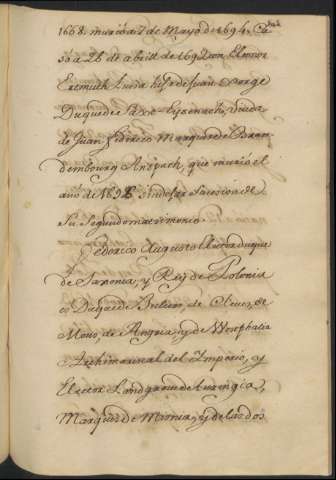 1668. murió a 7 de Mayo de 1694. Ca
só a 26 de abril de 1692 con Eleonor
Erdmuth Luisa hija de Juan George
Duque de Saxe-Eysenach, viuda
de Juan Federico Marques de Bran
dembourg Anspach, que murió el
año de 1696 sin dejar sucesion de
su segundo matrimonio.
Federico Augusto Elector duque
de Saxonia, y Rey de Polonia
es Duque de Juliers, de Cleves, de
Mons, de Angria, y de Westphalia
Archimariscal del Imperio, y
Elector Landgrave de Turingia,
Marques de Misnia, y de las dos